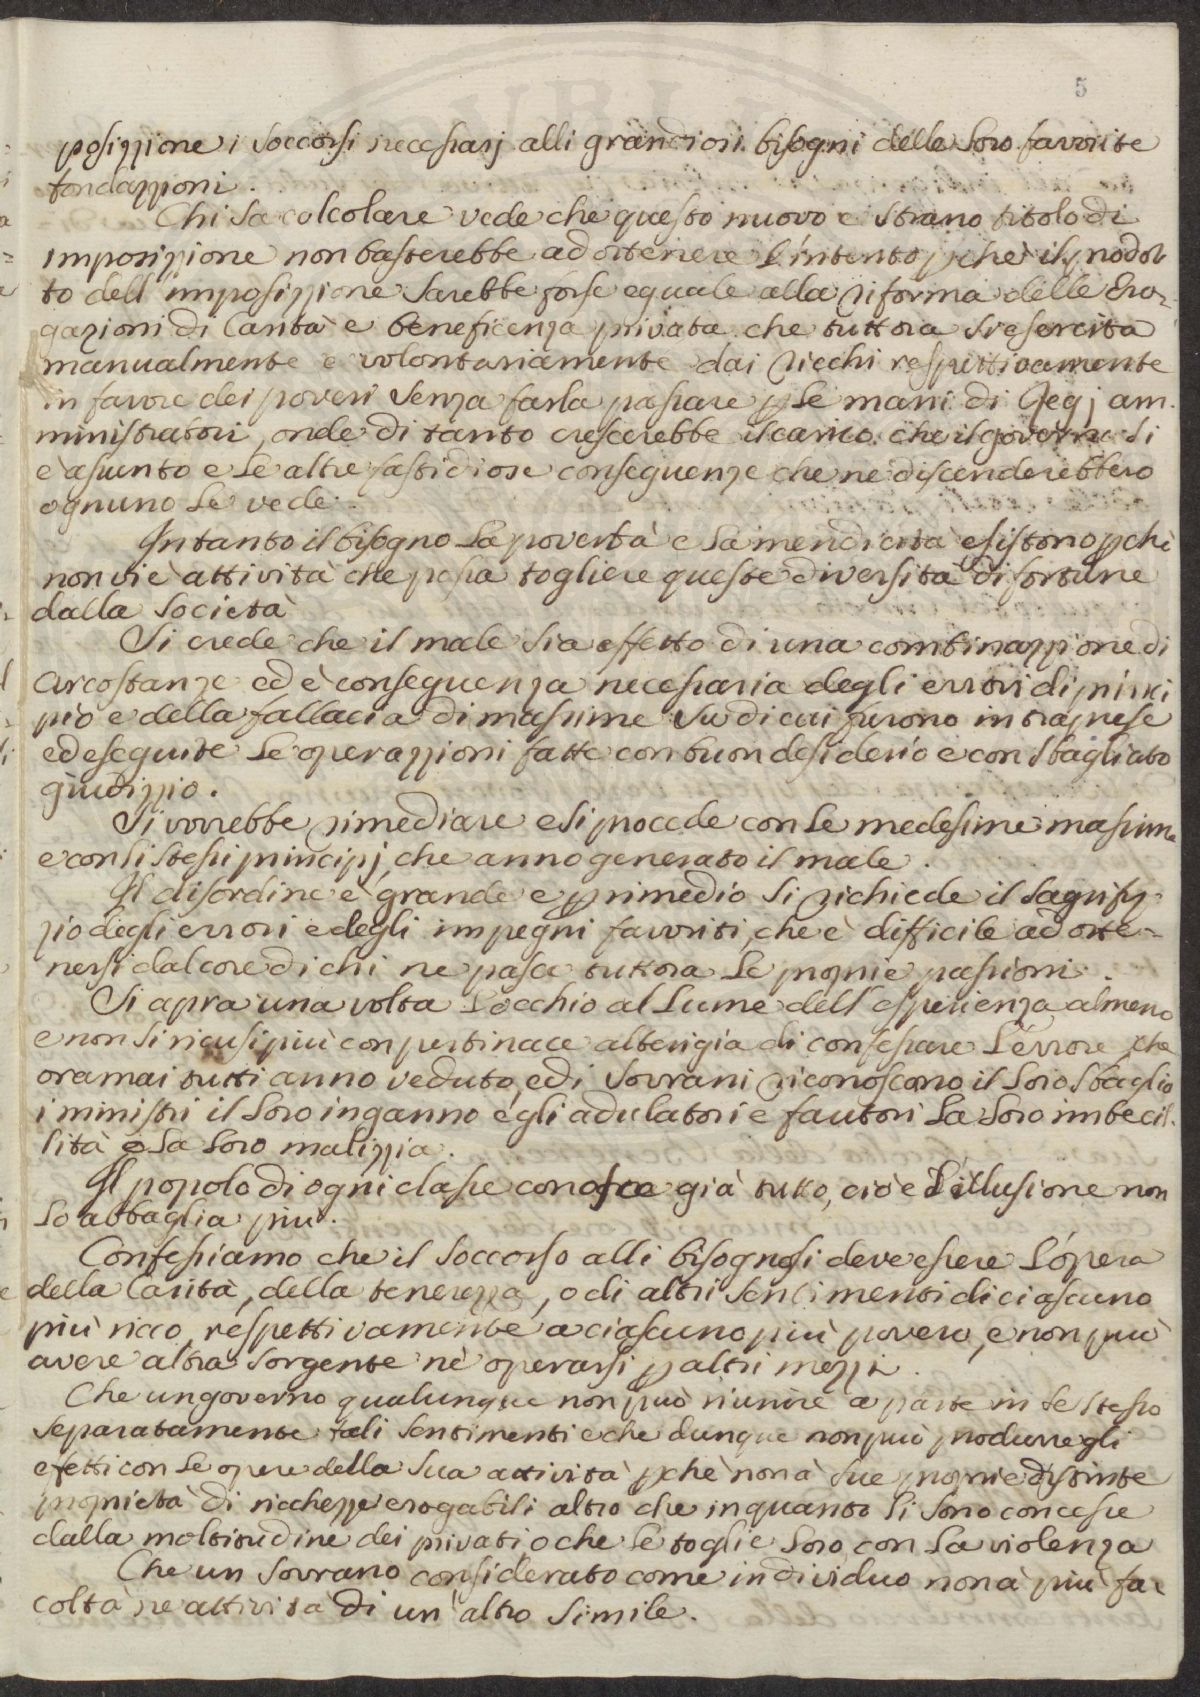 5
posizzione i soccorsi necessarj alli grandiosi bisogni delle loro favorite
fondazzioni.
Chi sa calcolare vede che questo nuovo e strano titolo di
imposizzione non basterebbe ad ottenere l'intento pche il prodot
to dell'imposizzione sarebbe forse eguale alla riforma delle Ero-
gazioni di Carità e beneficenza privata che tuttora s'esercita
manualmente e volontariamente dai ricchi respettivamente
in favore dei poveri senza farla passare p le mani di Regj am-
ministratori, onde di tanto crescerebbe il carico che il governo si
è assunto e le altre fastidiose conseguenze che ne discenderebbero
ognuno le vede.
Intanto il bisogno la povertà e la mendicità esistono pchè
non vi è attività che possa togliere queste diversità di fortune
dalla società
Si crede che il male sia effetto di una combinazzione di
circostanze ed è conseguenza necessaria degli errori di princi
pio e della fallacia di massime su di cui furono intraprese
ed eseguite le operazzioni fatte con buon desiderio e con sbagliato
giudizzio.
Si vorrebbe rimediare e si procede con le medesime massime
e con li stessi principj, che anno generato il male.
Il disordine è grande e p rimedio si richiede il sagrifiz-
zio degli errori e degli impegni favoriti, che è difficile ad otte-
nersi dal core di chi ne pasce tuttora le proprie passioni.
Si apra una volta l'occhio al lume dell'esperienza almeno
e non si ricusi più con pertinace alterigia di confessare l'errore che
oramai tutti anno veduto, ed i sovrani riconoscono il loro sbaglio
i ministri il loro inganno e gli adulatori e fautori la loro imbecil-
lità o la loro malizzia.
Il popolo di ogni classe conosce già tutto, cioè l'illusione non
lo abbaglia più.
Confessiamo che il soccorso alli bisognosi deve essere l'opera
della Carità, della tenerezza, o di altri sentimenti di ciascuno
più ricco, respettivamente a ciascuno più povero, e non può
avere altra sorgente nè operarsi p altri mezzi.
Che un governo qualunque non può riunire a parte in se stesso
separatamente tali sentimenti e che dunque non può produrre gli
effetti con le opere della sua attività pchè non à sue proprie distinte
proprietà di ricchezze erogabili altro che in quanto li sono concesse
dalla moltitudine dei privati o che le toglie loro con la violenza
Che un sovrano considerato come individuo non à più fa-
coltà ne attività di un altro simile.